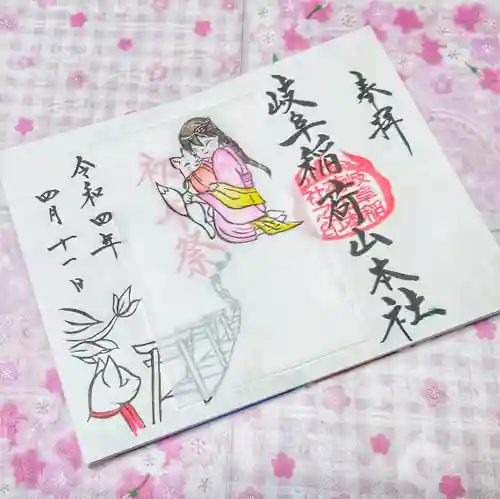 奉拝
岐阜稲荷山本社
初午祭
令和四年
四月十一日